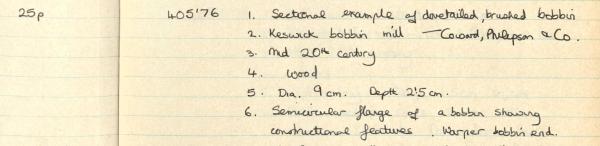 25p 405'76 1. Sectional example of dovetailed, brushed bobbin
2. Keswick bobbin mill - Coward, Philipson & Co.
3. Mid 20th century
4. Wood
5. Dia. 9 cm. Depth 2'5 cm.
6. Semicircular flange of a bobbin showing
constructional features. Warper bobbin end.